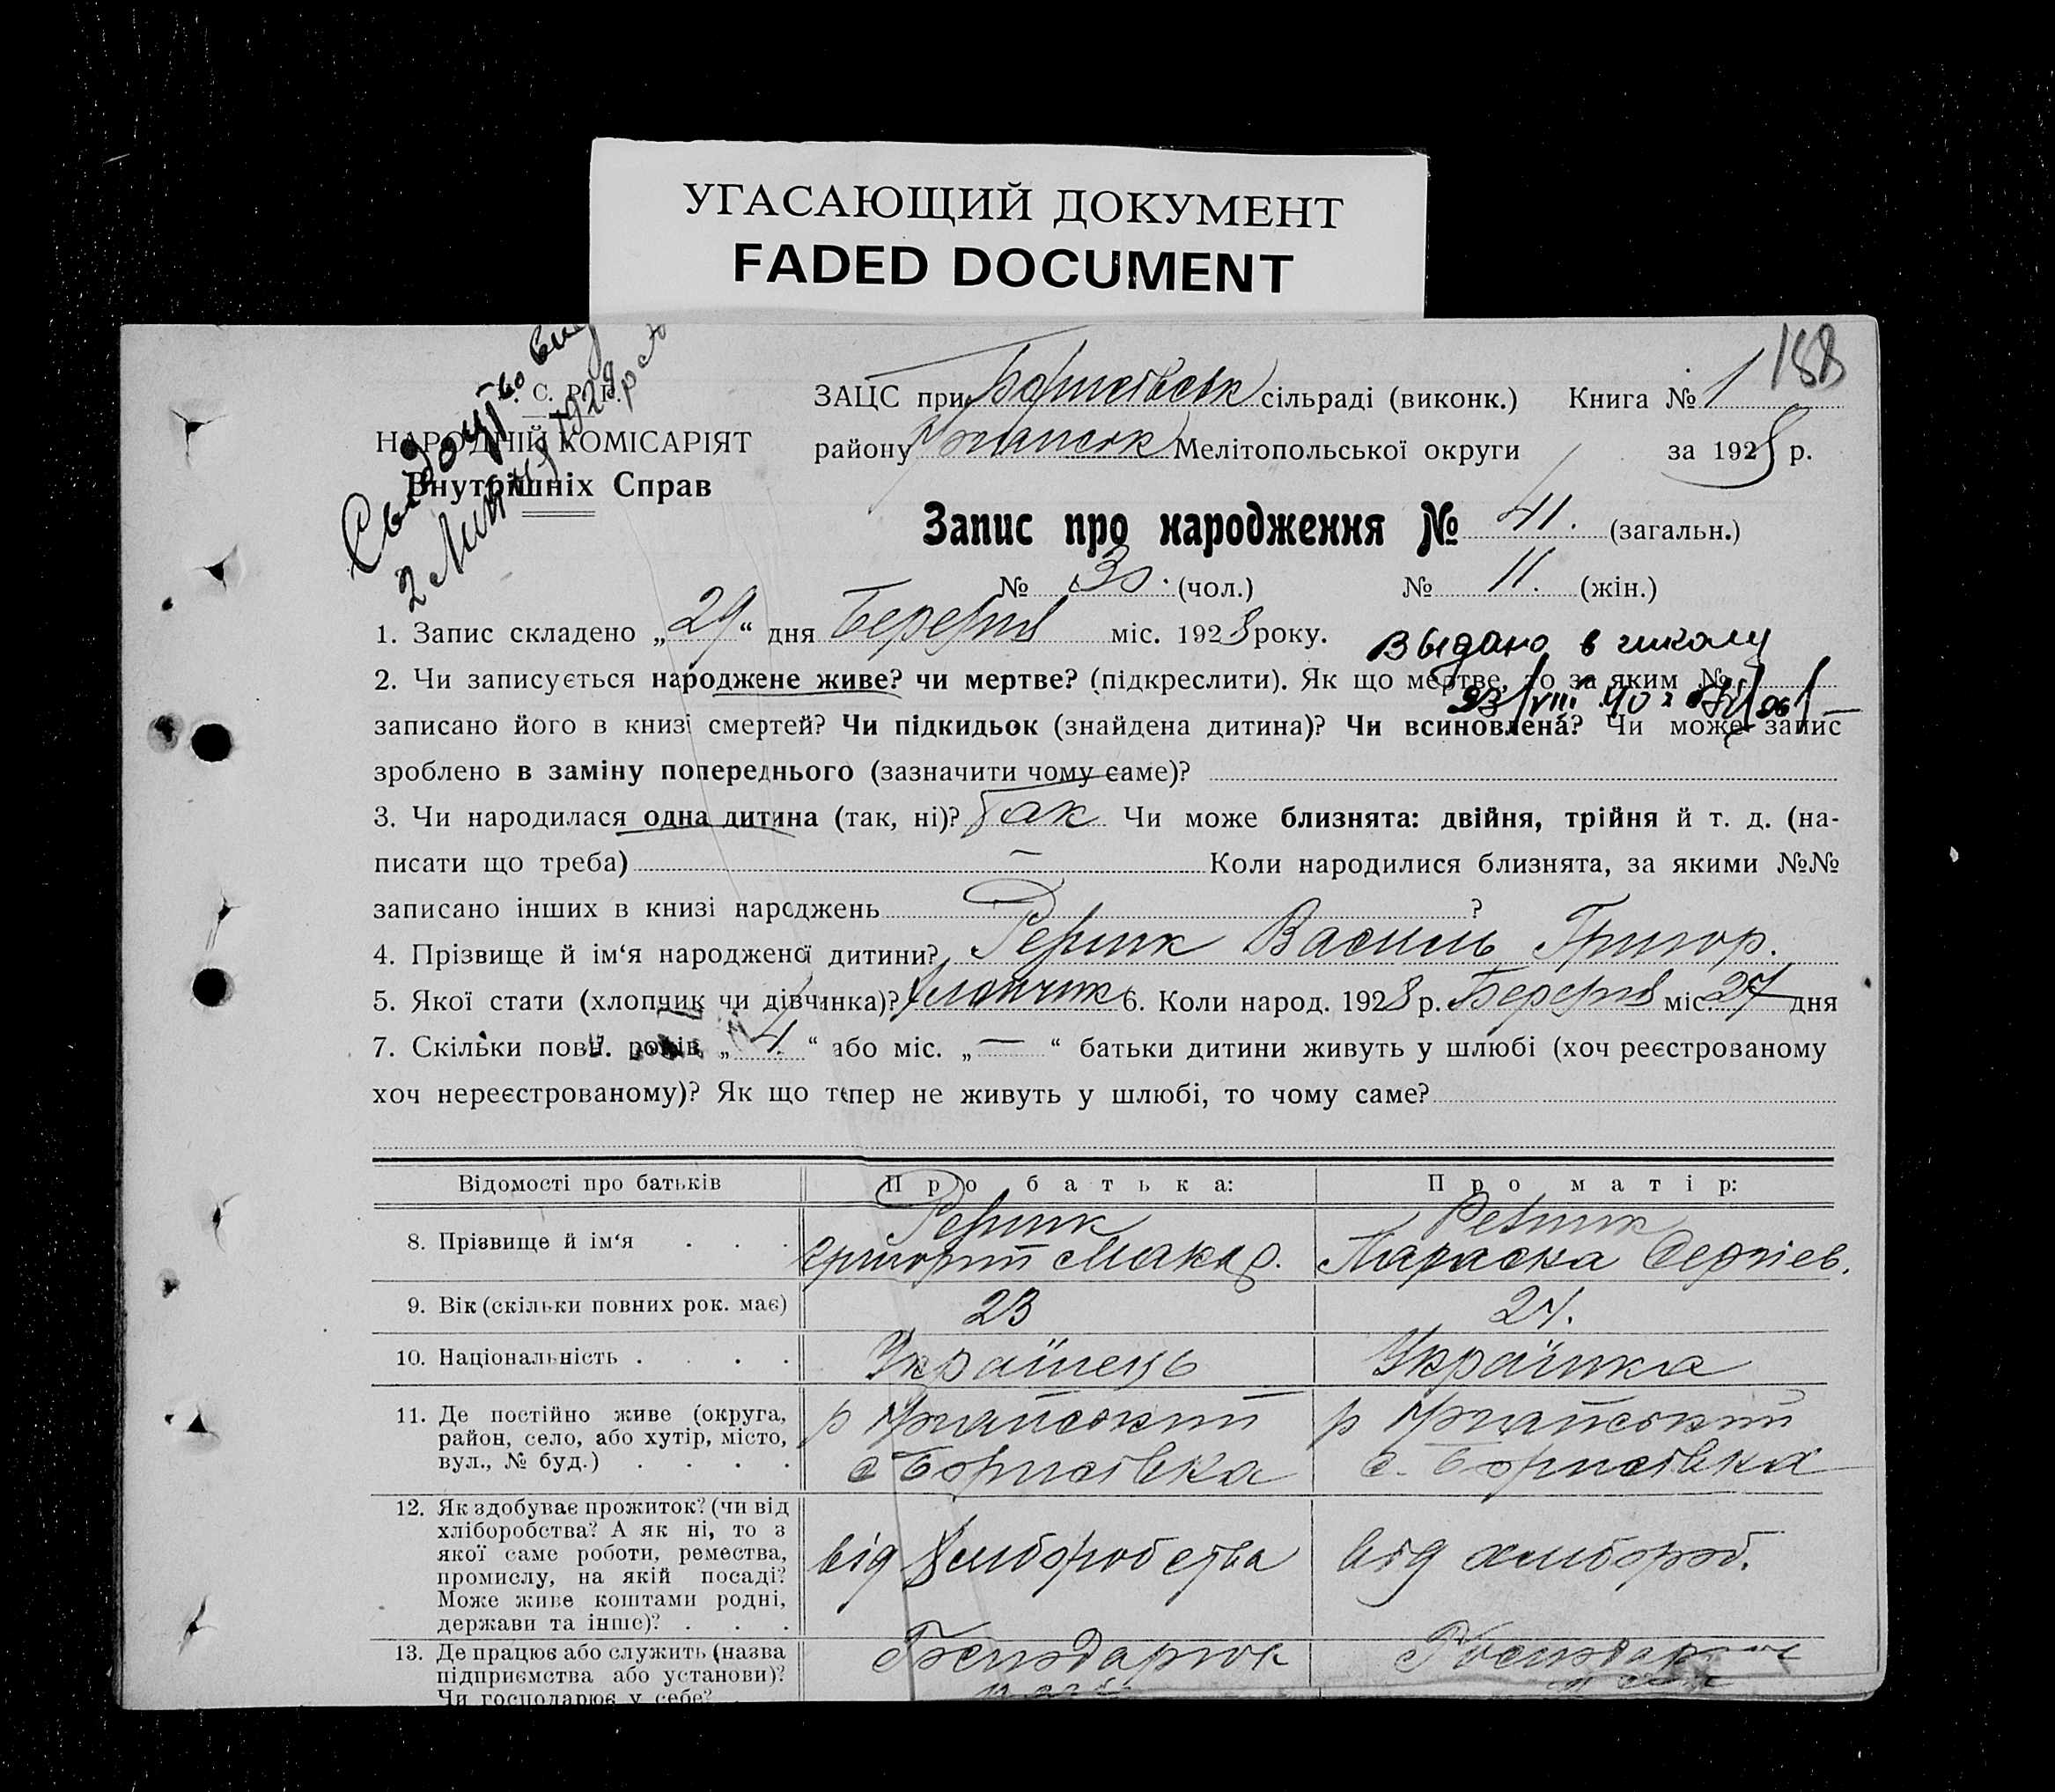 УГАСАЮЩИЙ ДОКУМЕНТ
FADED DOCUMENT
188
С. Р. Р.
НАРОДНІЙ КОМІСАРІЯТ
Внутрішніх Справ
2 1929 р
ЗАЦС при сільраді (виконк.) Книга № 1
району Мелітопольської округи за 1928 р.
Запис про народження № 41. (загальн.)
№ 30. (чол.) № 11. (жін.)
1. Запис складено „29“ дня Березня міс. 1928 року.
Выдано в школу
2. Чи записується народжене живе? чи мертве? (підкреслити). Як що мертве, то за яким №
23/VIII 40
записано його в книзі смертей? Чи підкидьок (знайдена дитина)? Чи всиновлена? Чи може запис
зроблено в заміну попереднього (зазначити чому саме)?
3. Чи народилася одна дитина (так, ні)? Так Чи може близнята: двійня, трійня й т. д. (на-
писати що треба) — Коли народилися близнята, за якими №№
записано інших в книзі народжень ?
4. Прізвище й ім‘я народженої дитини? Василь Григор.
5. Якої стати (хлопчик чи дівчинка)? Хлопчик 6. Коли народ. 1928 р. Березня міс. 27 дня
7. Скільки повн. років „4“ або міс. „—“ батьки дитини живуть у шлюбі (хоч реєстрованому
хоч нереєстрованому)? Як що тепер не живуть у шлюбі, то чому саме?
Відомості про батьків Про батька: Про матір:
8. Прізвище й ім‘я . . .
Григорій Макар. Параска Сергіев.
9. Вік (скільки повних рок. має) 23 24.
10. Національність . . . . Українець Українка
11. Де постійно живе (округа, район, село, або хутір, місто, вул., № буд.) . . . .
12. Як здобуває прожиток? (чи від хліборобства? А як ні, то з якої саме роботи, ремества, промислу, на якій посаді? Може живе коштами родні, держави та інше)? . . .
від хлиборобства від хлибороб.
13. Де працює або служить (назва
підприємства або установи)?
Чи господарює у себе? .